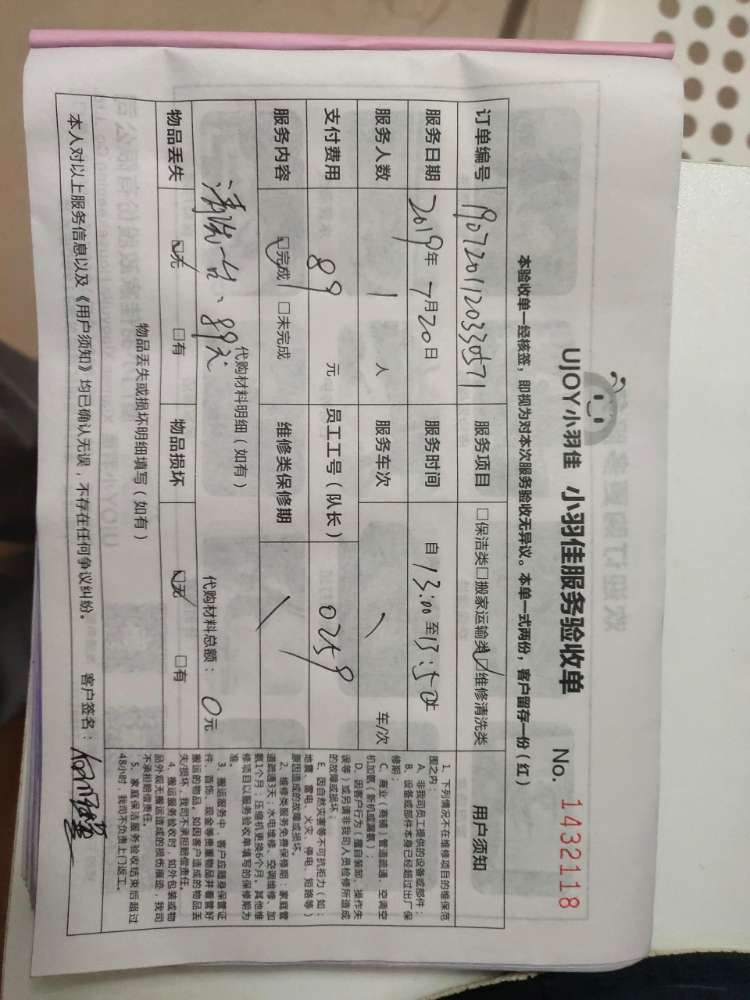 UJOY小羽佳 小羽佳服务验收单 No. 1432118
本验收单一经核签，即视为对本次服务验收无异议。本单一式两份，客户留存一份（红）
订单编号 1907201120330571 服务项目 □保洁类□搬家运输类☑维修清洗类 用户须知
服务日期 2019年7月20日 服务时间 自 13:00 至 13:50止
服务人数 1 人 服务车次 \ 车/次
支付费用 89 元 员工工号（队长） 0259
服务内容 ☑完成 □未完成 维修类保修期 \
代购材料明细（如有） 代购材料总额： 0元
清洗一台、89元
物品丢失 ☑无 □有 物品损坏 ☑无 □有
物品丢失或损坏明细填写（如有）
1、下列情况不在维修项目的维保范
围之内：
A、非我司员工提供的设备或部件；
B、设备或部件本身已经超过出厂保
修期；
C、商业（商铺）管道疏通、空调空
机加氨（新机或漏氨）；
D、因客户行为（擅自装卸、操作失
误等）或另请非我司人员检修所造成
的故障或损坏；
E、因自然灾害等不可抗拒力（如：
地震、雷电、火灾、停电、短路等）
原因造成的故障或损坏。
2、维修类服务免费保修期：家庭管
道疏通3天；水电维修、空调维修、加
氨1个月，压缩机更换6个月。其他维
修项目以服务验收单填写的保修期为
准。
3、搬运服务中，客户应随身保管证
件、首饰、现金等贵重物品并看管好
搬运的物品，如因客户造成的物品丢
失/损坏，我司不承担赔偿责任。
4、搬运服务验收时，如外包装或物
品外观无搬运造成的损伤痕迹，我司
不承担赔偿责任。
5、家庭保洁服务验收结束后超过
48小时，我司不负责上门返工。
本人对以上服务信息以及《用户须知》均已确认无误，不存在任何争议纠纷。 客户签名：